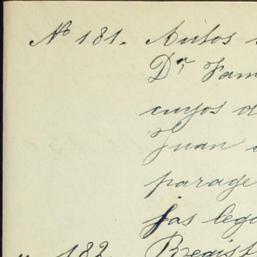 Nº 181. Autos
Dr Fam
cuyos d
Juan
parage
jas lega
182 Regist